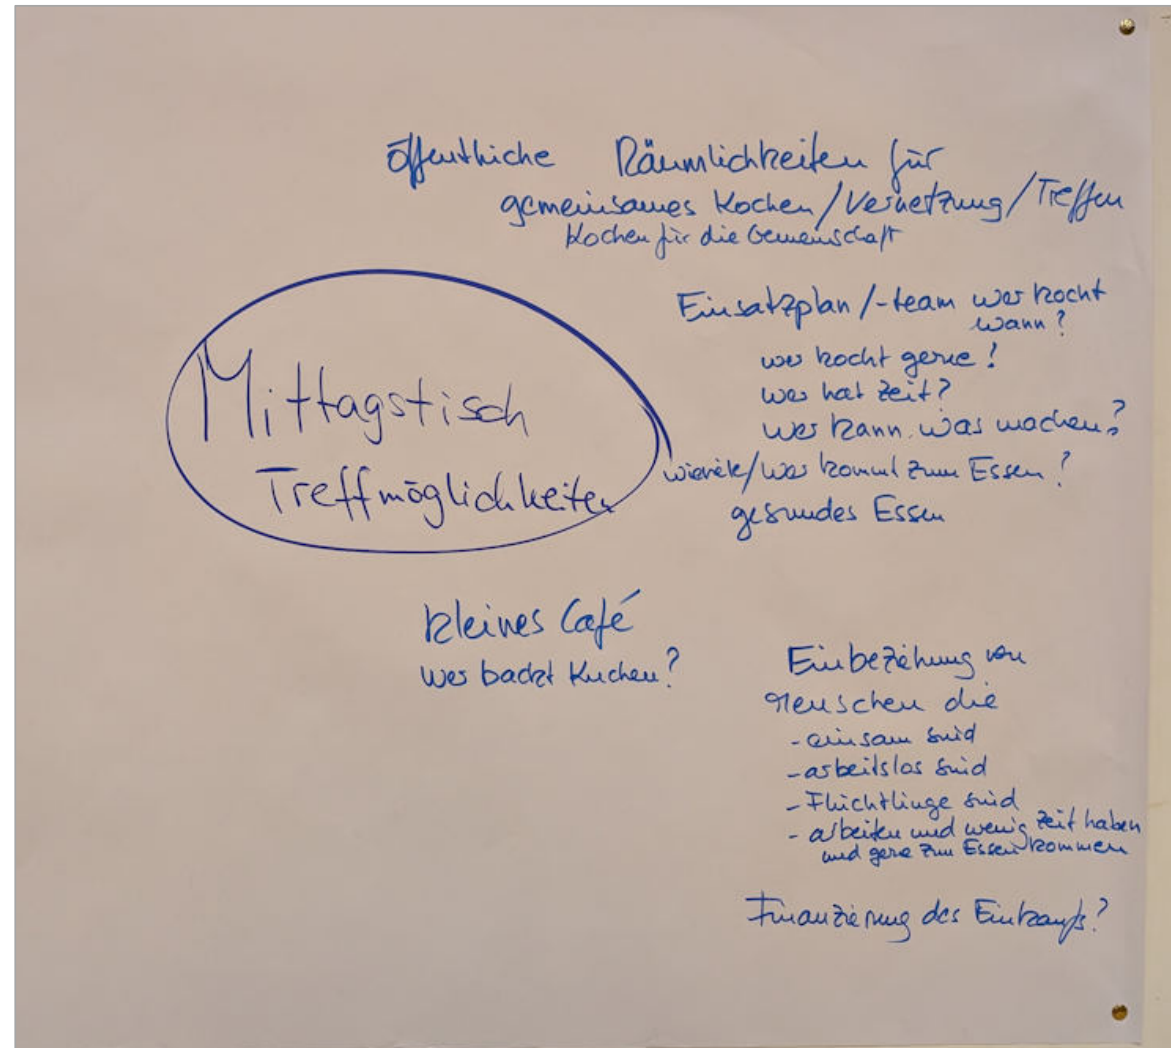 öffentliche Räumlichkeiten für
gemeinsames Kochen/Vernetzung/Treffen
Kochen für die Gemeinschaft
Mittagstisch
Treffmöglichkeiten
Einsatzplan/-team wer kocht
wann?
wer kocht gerne!
wer hat Zeit?
wer kann was machen?
wieviele/wer kommt zum Essen?
gesundes Essen
kleines Café
wer backt Kuchen?
Einbeziehung von
Menschen die
- einsam sind
- arbeitslos sind
- Flüchtlinge sind
- arbeiten und wenig Zeit haben
und gerne zum Essen kommen
Finanzierung des Einkaufs?